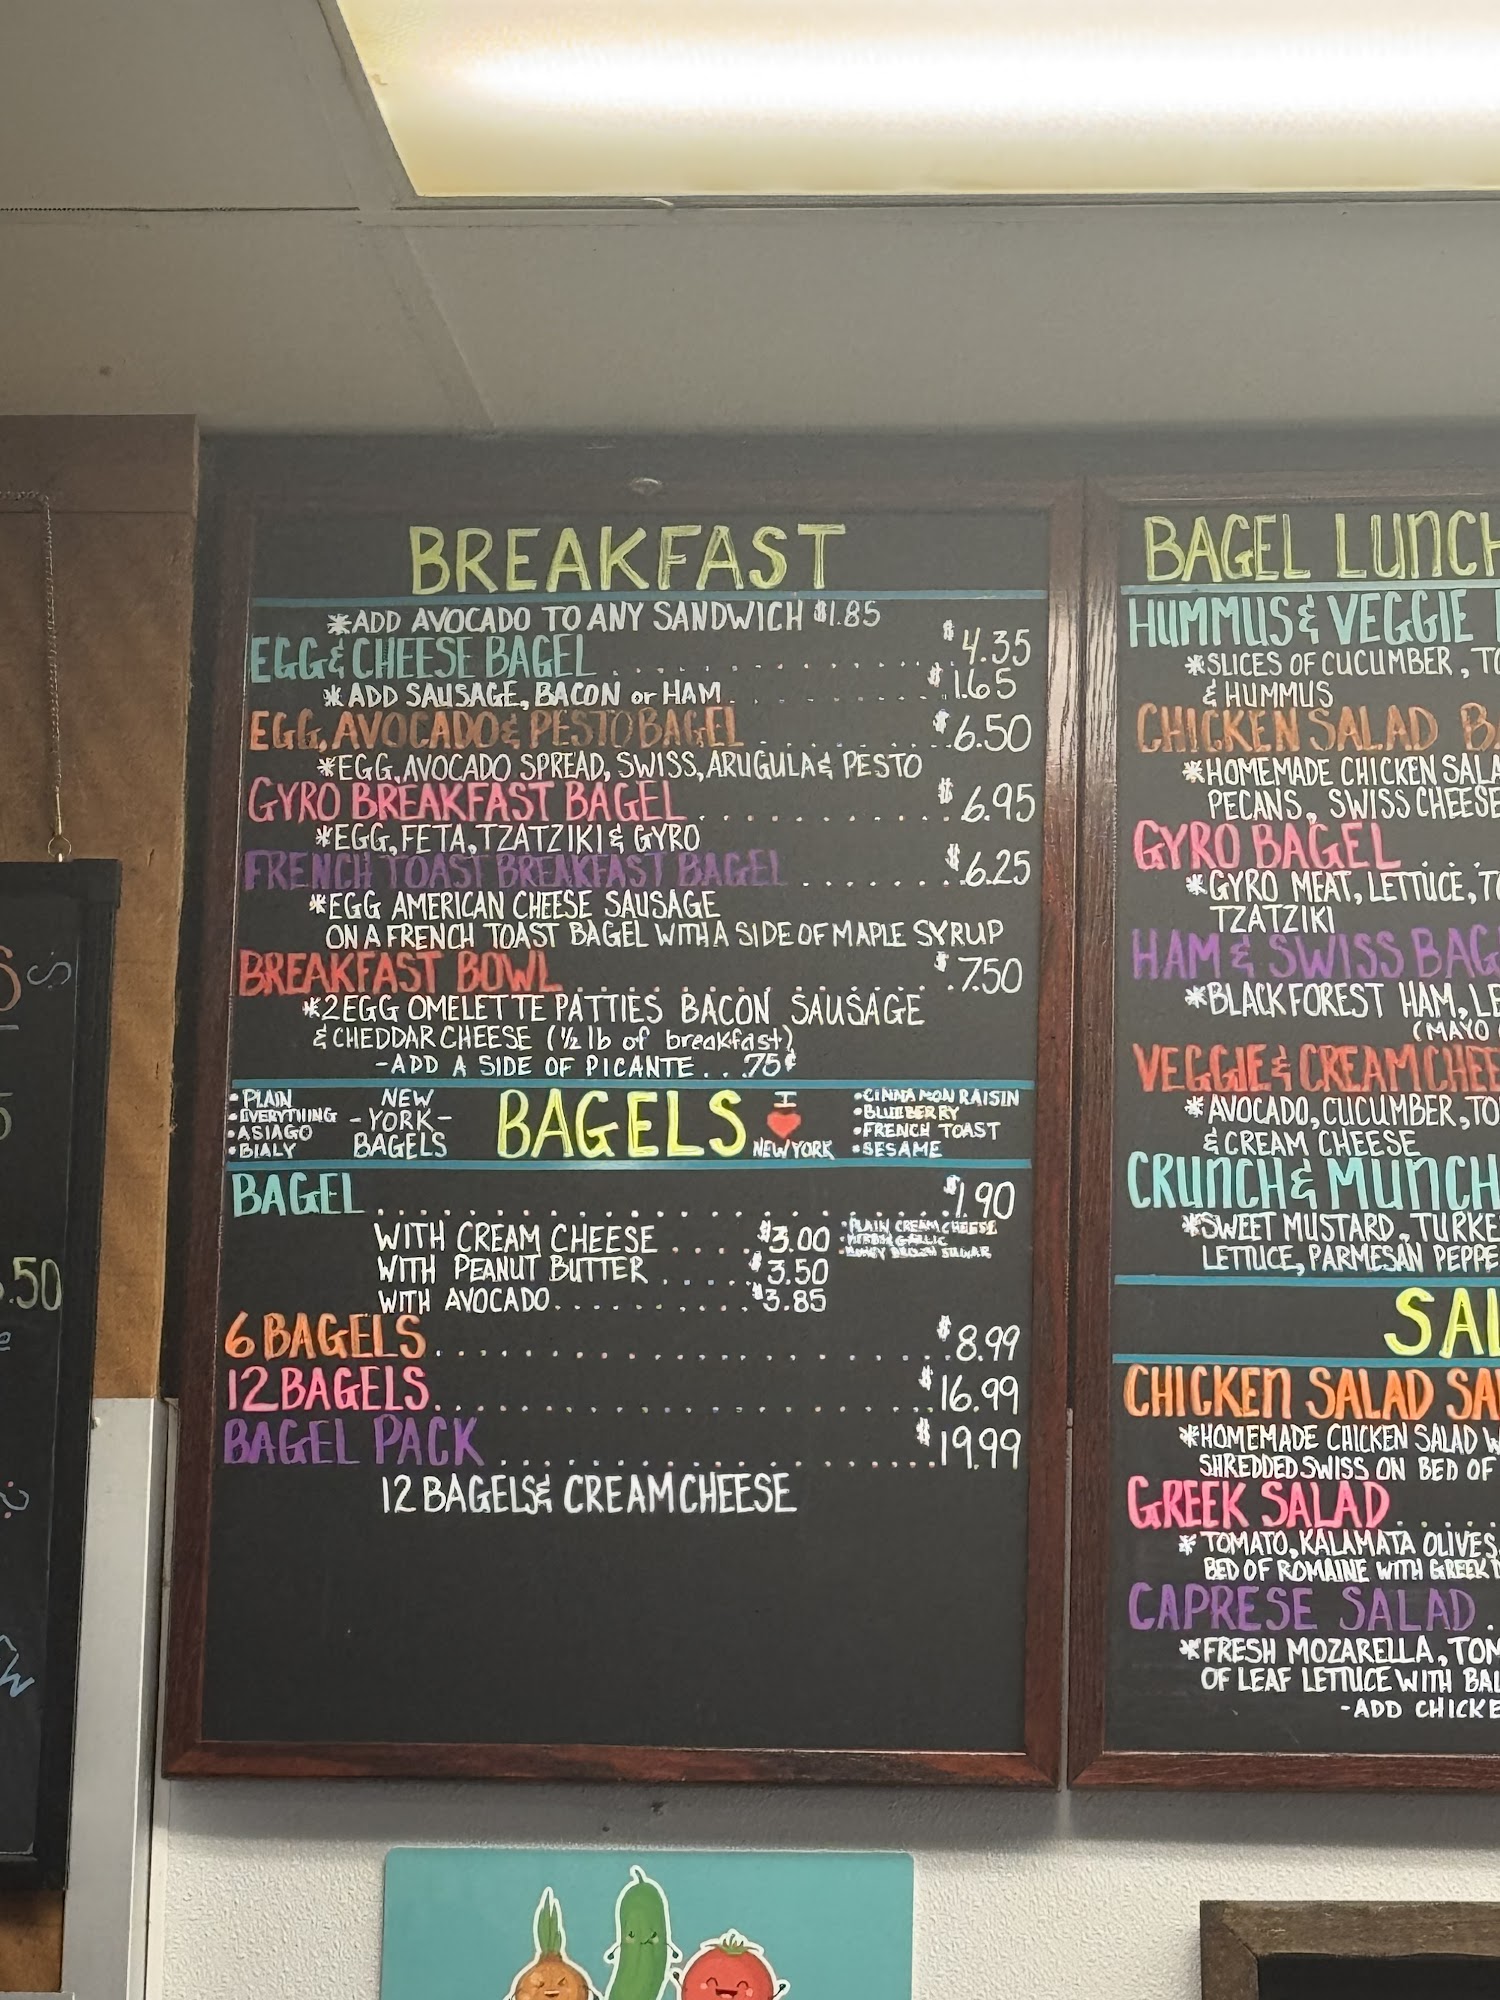 BREAKFAST
*ADD AVOCADO TO ANY SANDWICH $1.85
EGG & CHEESE BAGEL . . . . . . . . . . . . . $4.35
*ADD SAUSAGE, BACON or HAM . . . . . . . $1.65
EGG, AVOCADO & PESTO BAGEL . . . . . . . . . $6.50
*EGG, AVOCADO SPREAD, SWISS, ARUGULA & PESTO
GYRO BREAKFAST BAGEL . . . . . . . . . . . $6.95
*EGG, FETA, TZATZIKI & GYRO
FRENCH TOAST BREAKFAST BAGEL . . . . . . . $6.25
*EGG AMERICAN CHEESE SAUSAGE
ON A FRENCH TOAST BAGEL WITH A SIDE OF MAPLE SYRUP
BREAKFAST BOWL . . . . . . . . . . . . . . . $7.50
*2 EGG OMELETTE PATTIES BACON SAUSAGE
& CHEDDAR CHEESE (1/2 lb of breakfast)
-ADD A SIDE OF PICANTE . . . .75¢
•PLAIN
•EVERYTHING
•ASIAGO
•BIALY
NEW
-YORK-
BAGELS
BAGELS
I
❤
NEW YORK
•CINNAMON RAISIN
•BLUEBERRY
•FRENCH TOAST
•SESAME
BAGEL . . . . . . . . . . . . . . . . . . . . . $1.90
WITH CREAM CHEESE . . . . $3.00
•PLAIN CREAM CHEESE
•HERB & GARLIC
•HONEY BROWN SUGAR
WITH PEANUT BUTTER . . . . . $3.50
WITH AVOCADO . . . . . . . . . . $3.85
6 BAGELS . . . . . . . . . . . . . . . . . . . $8.99
12 BAGELS . . . . . . . . . . . . . . . . . . . $16.99
BAGEL PACK . . . . . . . . . . . . . . . . . . $19.99
12 BAGELS & CREAM CHEESE
BAGEL LUNCH
HUMMUS & VEGGIE
*SLICES OF CUCUMBER,
& HUMMUS
CHICKEN SALAD
*HOMEMADE CHICKEN
PECANS, SWISS CHEESE
GYRO BAGEL . . . .
*GYRO MEAT, LETTUCE,
TZATZIKI
HAM & SWISS
*BLACK FOREST HAM,
(MAYO
VEGGIE & CREAM
*AVOCADO, CUCUMBER,
& CREAM CHEESE
CRUNCH & MUNCH
*SWEET MUSTARD,
LETTUCE, PARMESAN
CHICKEN SALAD
*HOMEMADE CHICKEN SALAD
SHREDDED SWISS ON BED OF
GREEK SALAD . . . .
*TOMATO, KALAMATA OLIVES,
BED OF ROMAINE WITH GREEK
CAPRESE SALAD .
*FRESH MOZARELLA,
OF LEAF LETTUCE WITH
-ADD
.50